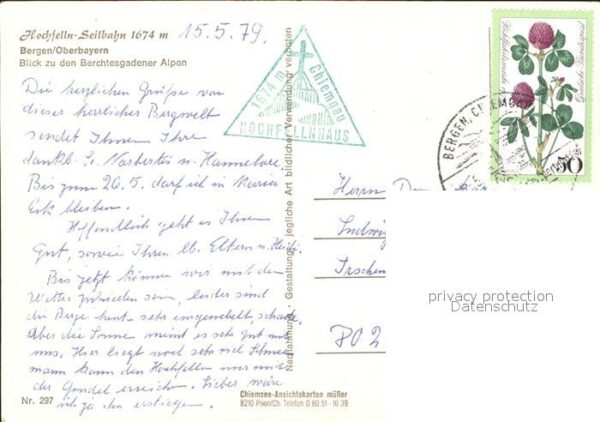 Hochfelln-Seilbahn 1674 m
Bergen/Oberbayern
Blick zu den Berchtesgadener Alpen
15.5.79.
Die herzlichen Grüße von
dieser herrlichen Bergwelt
sendet Ihnen Ihre
dankb. S. Norberta u. Hannelore.
Bis zum 26.5. darf ich in Maria
Eck bleiben.
Hoffentlich geht es Ihnen
gut, sowie Ihren lb. Eltern u.
Bis jetzt können wir mit dem
Wetter zufrieden sein, leider sind
die Berge heute sehr eingenebelt, schade.
Aber die Sonne meint es sehr gut mit
uns. Hier liegt noch sehr viel Schnee
mann kann den Hochfellen nur mit
der Gondel erreichen. Lieber wäre
ich ja ihn erstiegen.
Nr. 297
1674 m
Chiemgau
HOCHFELLNHAUS
Nachahmung, Gestaltung, jegliche Art bildlicher Verwendung verboten
Chiemsee-Ansichtskarten müller
8210 Prien/Ch. Telefon 0 80 51 - 16 39
Wiesenklee
Deutsche Bundespost
50
BERGEN, CHIEMGAU
Herrn
Ludwig
802
privacy protection
Datenschutz